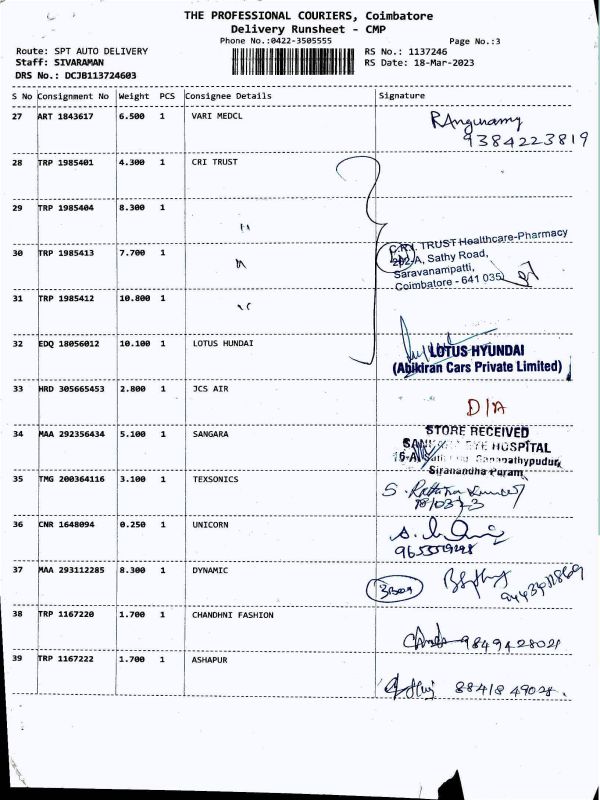 THE PROFESSIONAL COURIERS, Coimbatore
Delivery Runsheet - CMP
Phone No.:0422-3505555
Page No.:3
Route: SPT AUTO DELIVERY
RS No.: 1137246
Staff: SIVARAMAN
RS Date: 18-Mar-2023
DRS No.: DCJB113724603
S No Consignment No Weight PCS Consignee Details Signature
27 ART 1843617 6.500 1 VARI MEDCL
9384223819
28 TRP 1985401 4.300 1 CRI TRUST
29 TRP 1985404 8.300 1
"
30 TRP 1985413 7.700 1
C.R.I. TRUST Healthcare-Pharmacy
202-A, Sathy Road,
Saravanampatti,
Coimbatore - 641 035
31 TRP 1985412 10.800 1
32 EDQ 18056012 10.100 1 LOTUS HUNDAI
LOTUS HYUNDAI
(Abikiran Cars Private Limited)
33 HRD 305665453 2.800 1 JCS AIR
D/A
34 MAA 292356434 5.100 1 SANGARA
STORE RECEIVED
EYE HOSPITAL
Sivanandha Puram
35 TMG 200364116 3.100 1 TEXSONICS
36 CNR 1648094 0.250 1 UNICORN
37 MAA 293112285 8.300 1 DYNAMIC
38 TRP 1167220 1.700 1 CHANDHNI FASHION
9849428021
39 TRP 1167222 1.700 1 ASHAPUR
88418 49028.